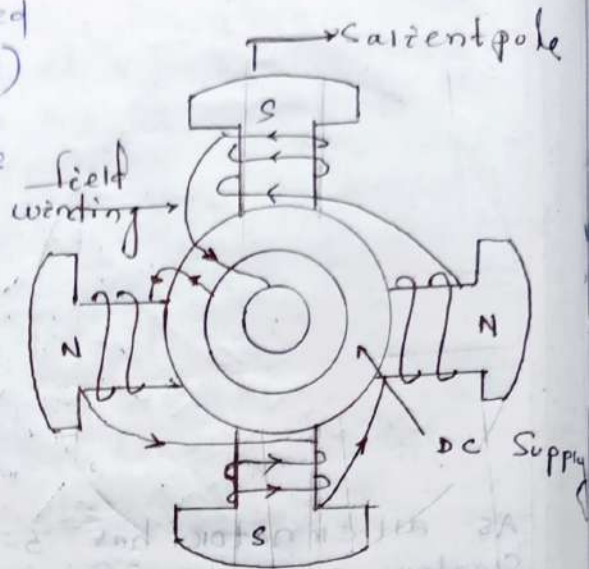 ed
)
Salient pole
S
field
winding
N
N
DC Supply
S